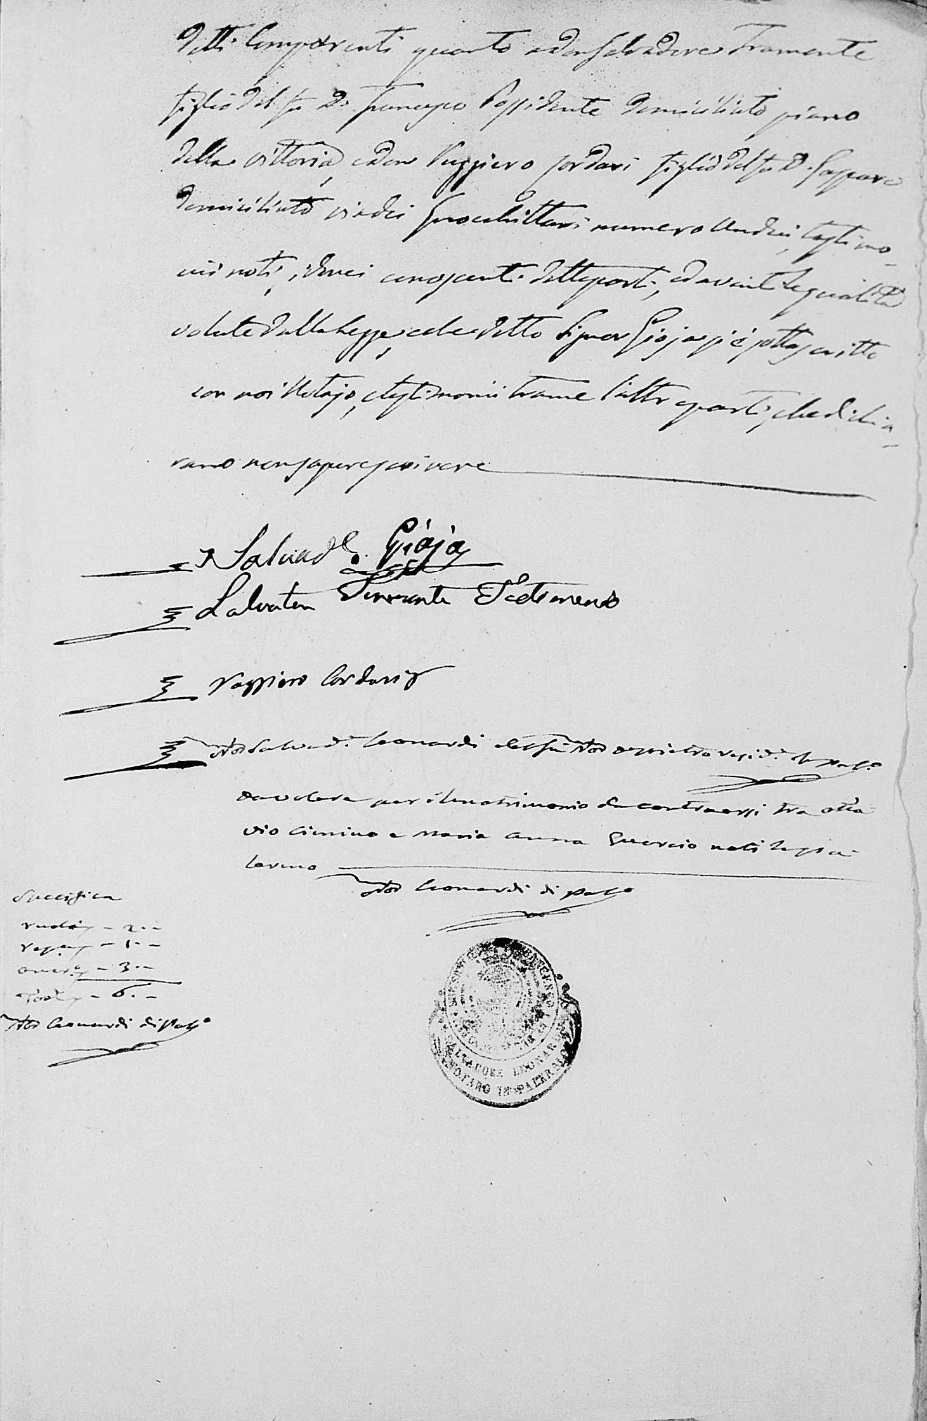 detti Comparenti quanto a Don Salvadore Tramonte
figlio del fu D. Francesco Possidente domiciliato piano
della Vittoria, e Don Ruggiero Cordari figlio del fu D. Gaspare
domiciliato via dei numero undici, testimo-
nii noti, idonei conoscenti delle parti, ed aventi le qualità
volute dalla legge, e che detto Signor Gioja si è sottoscritto
con noi Notajo, e testimonii tranne l'altre parti, che dichia-
rano non sapere scrivere
Salvad.e Gioja
Salvatore Testimonio
Ruggiero Cordari
Not.r Salvad.e Leonardi del fu Not.r resid.e di Pal.o
da valere per il matrimonio da contraersi tra Otta
vio Cimino e Maria Anna Guercio
Not.r Leonardi di Pal.o
Specifica
- 2. -
- 1. -
- 3. -
- 6. -
Not.r Leonardi di Pal.o
SALVADORE LEONARDI
NOTARO IN PALERMO